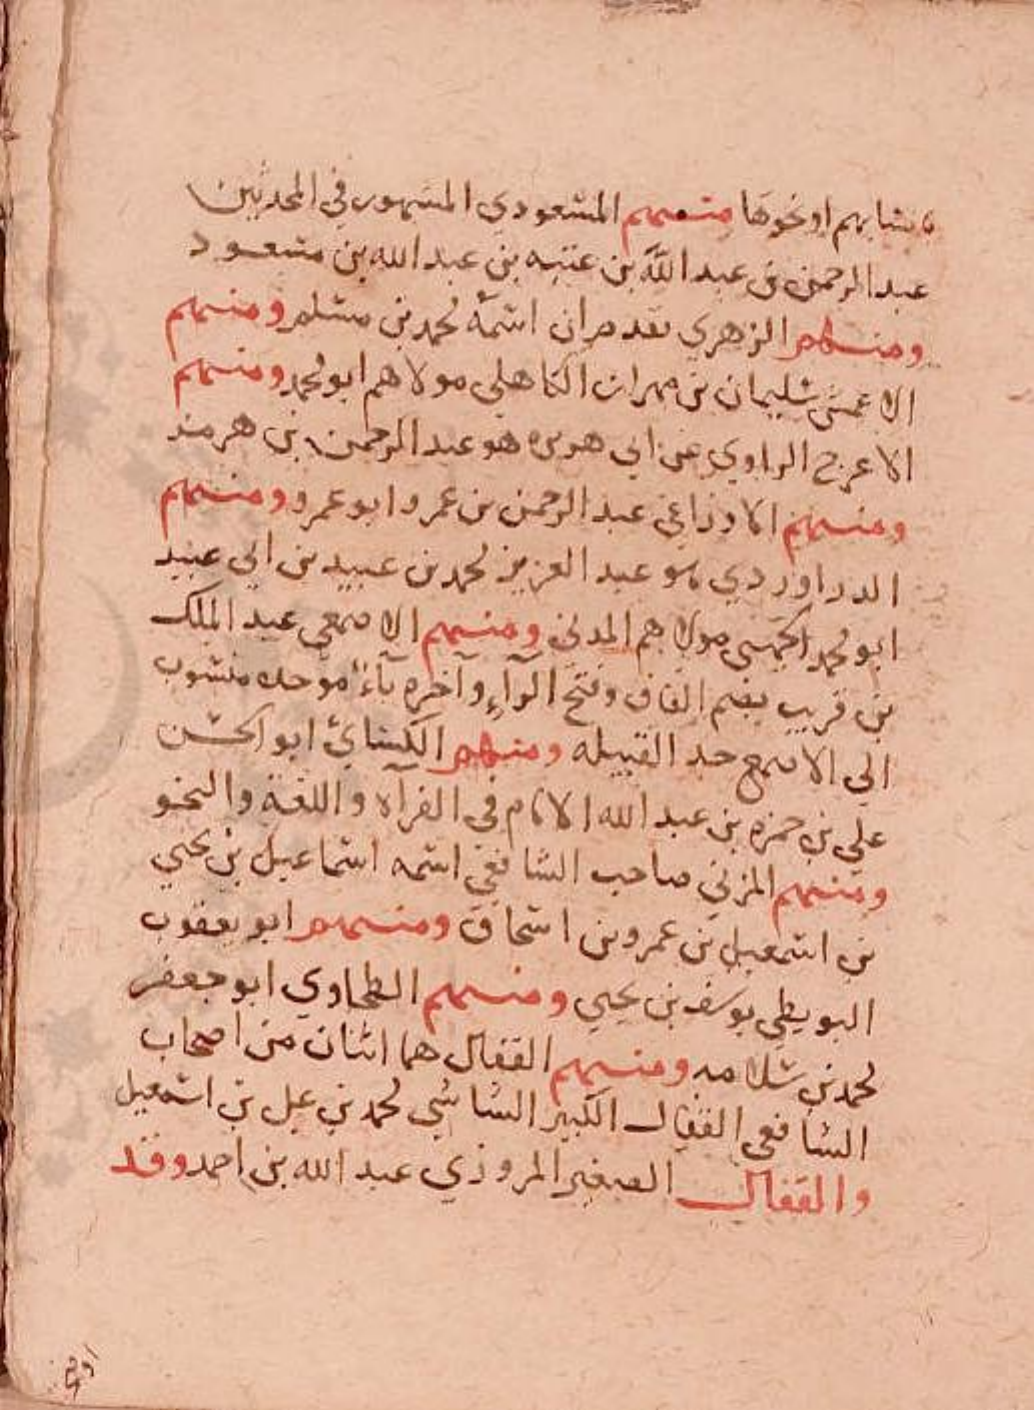 بانسابهم او نحوها منهم المسعودي المشهور في المحدثين
عبد الرحمن بن عبد الله بن عتبه بن عبد الله بن مسعود
ومنهم الزهري تقدم ان اسمه محمد بن مسلم ومنهم
الاعمش سليمان بن مهران الكاهلي مولاهم ابو محمد ومنهم
الاعرج الراوي عن ابي هريره هو عبد الرحمن بن هرمز
ومنهم الاوزاعي عبد الرحمن بن عمرو ابو عمرو ومنهم
الدراوردي هو عبد العزيز محمد بن عبيد بن ابي عبيد
ابو محمد الجهني مولاهم المدني ومنهم الاصمعي عبد الملك
بن قريب بضم القاف وفتح الرآء وآخره بآء موحده منسوب
الي الاصمع جد القبيله ومنهم الكسائي ابو الحسن
علي بن حمزه بن عبد الله الامام في القرآة واللغة والنحو
ومنهم المزني صاحب الشافعي اسمه اسماعيل بن يحيي
بن اسمعيل بن عمرو بن اسحاق ومنهم ابو يعقوب
البويطي يوسف بن يحيي ومنهم الطحاوي ابو جعفر
محمد بن سلامه ومنهم القفال هما اثنان من اصحاب
الشافعي القفال الكبير الشاشي محمد بن علي بن اسمعيل
والقفال الصغير المروزي عبد الله بن احمد وقد